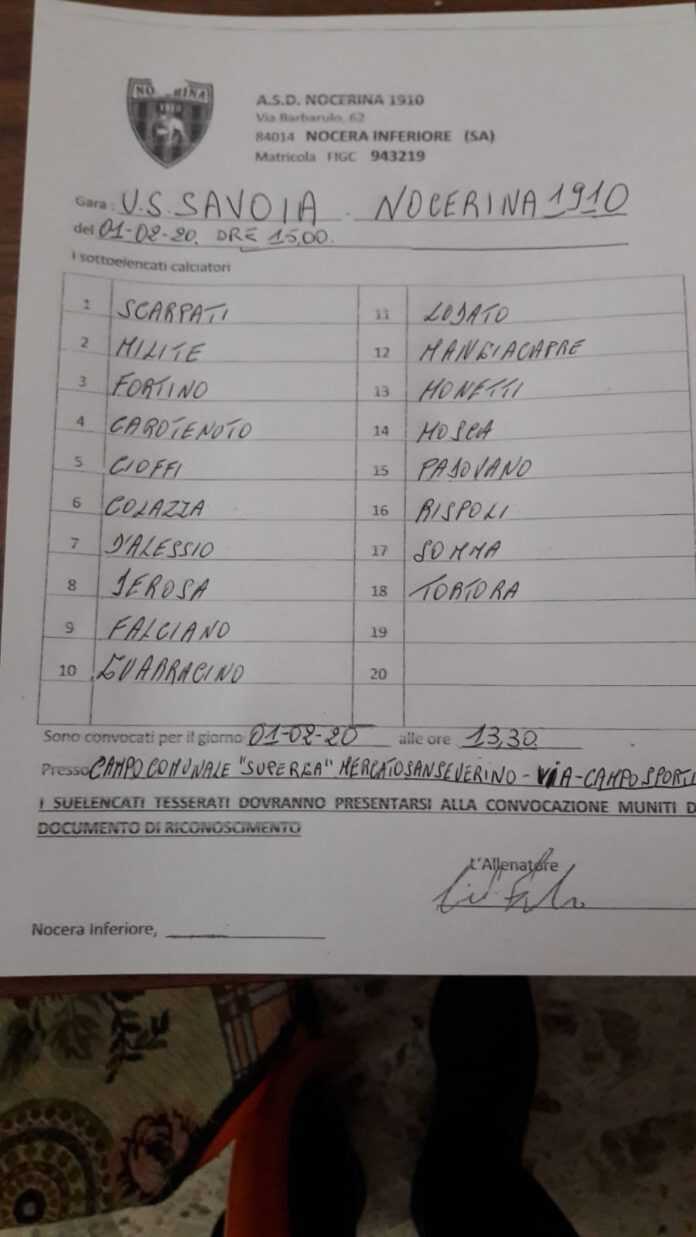 NOCERINA
1910
A.S.D. NOCERINA 1910
Via Barbarulo, 62
84014 NOCERA INFERIORE (SA)
Matricola FIGC 943219
Gara: U.S. SAVOIA - NOCERINA 1910
del 01-02-20. ORE 15,00.
I sottoelencati calciatori
1 SCARPATI
2 MILITE
3 FORTINO
4 CAROTENUTO
5 CIOFFI
6 COLAZZA
7 D'ALESSIO
8 DEROSA
9 FALCIANO
10 GUARRACINO
11 LODATO
12 MANGIACAPRE
13 MONETTI
14 MOSCA
15 PADOVANO
16 RISPOLI
17 SOMMA
18 TORTORA
19
20
Sono convocati per il giorno 01-02-20 alle ore 13,30
Presso CAMPO COMUNALE "SUPERGA" MERCATO SANSEVERINO - VIA - CAMPO SPORTI
I SUELENCATI TESSERATI DOVRANNO PRESENTARSI ALLA CONVOCAZIONE MUNITI D
DOCUMENTO DI RICONOSCIMENTO
L'Allenatore
Nocera Inferiore,